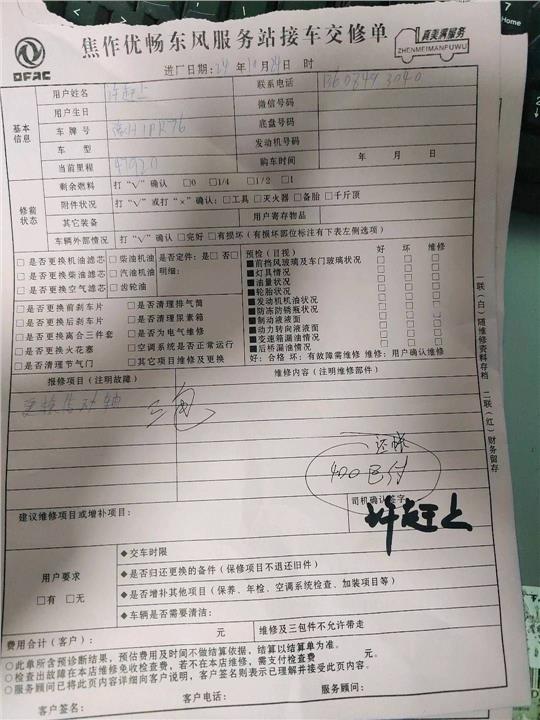 DFAC
焦作优畅东风服务站接车交修单
真美满服务
ZHENMEIMANFUWU
进厂日期: 24 年 11 月 29 日 时
基本信息
用户姓名 许赶上 联系电话
用户生日 微信号码
车牌号 底盘号码
车 型 发动机号码
当前里程 购车时间 年 月 日
修前状态
剩余燃料 打“√”确认 □0 □1/4 □1/2 □1
附件状况 打“√”或打“×”确认: □工具 □灭火器 □备胎 □千斤顶
其它装备 用户寄存物品
车辆外部情况 打“√”确认 □完好 □有损坏(有损坏部位标注有下表左侧选项)
□是否更换机油滤芯 □柴油机油 □是否定件: 是□否□
□是否更换柴油滤芯 □汽油机油 明细:
□是否更换空气滤芯 □齿轮油
□是否更换前刹车片 □是否清理排气筒
□是否更换后刹车片 □是否清理尿素箱
□是否更换离合三件套 □是否为电气维修
□是否更换火花塞 □空调系统是否正常运行
□是否清理节气门 □其它项目维修及更换
预检(目视) 好 坏 维修
■前挡风玻璃及车门玻璃状况 □ □ □
■灯具情况 □ □ □
■油量状况 □ □ □
■轮胎状况 □ □ □
■发动机机油状况 □ □ □
■防冻防锈瓶状况 □ □ □
■制动液液面 □ □ □
■动力转向液液面 □ □ □
■变速箱漏油情况 □ □ □
■后桥漏油情况 □ □ □
好: 合格 坏: 有故障需维修 维修: 用户确认维修
报修项目(注明故障) 维修内容(注明维修部件)
更换传动轴
400已付
司机确认签字
许赶上
建议维修项目或增补项目:
用户要求
□有 □无
◆交车时限
◆是否归还更换的备件(保修项目不退还旧件)
◆是否增补其他项目(保养、年检、空调系统检查、加装项目等)
◆车辆是否需要清洁:
费用合计(客户): 元 维修及三包件不允许带走
○此单所含预诊断结果，预估费用及时间不做结算依据，结算以结算单为准。
○检查出故障在本店维修免收检查费，若不在本店维修，需支付检查费 元。
○服务顾问已将此页内容详细向客户说明，客户签名则表示已理解并接受此页内容。
客户签名: 客户电话: 服务顾问:
一联(白)随维修资料存档 二联(红)财务留存